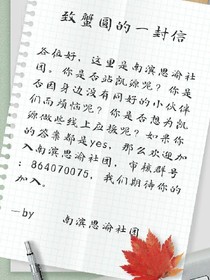 致蟹圆的一封信
各位好，这里是南滨思渝社
团。你是否站凯源呢？你是
否因身边没有同好的小伙伴
们而烦恼呢？你是否想为凯
源做些线上应援呢？如果你
的答案都是yes，那么欢迎加
入南滨思渝社团，审核群号
：864070075，我们期待你的
加入。
—by 南滨思渝社团